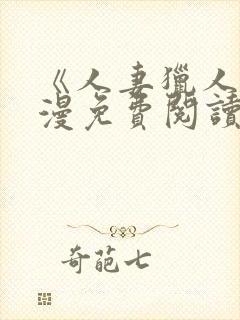 《人妻獵人
漫免費閱讀
奇葩七